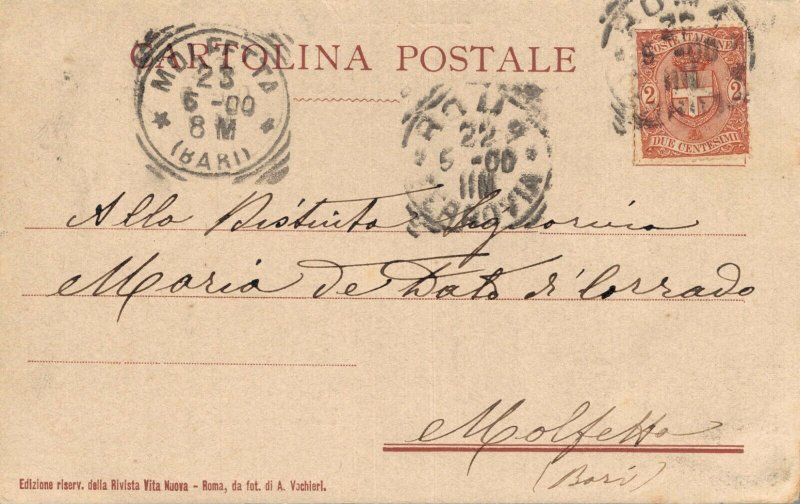 CARTOLINA POSTALE
MOLFETTA
23
6-00
8M
(BARI)
ROMA
22
6-00
11M
FERROVIA
POSTE ITALIANE
2 2
DUE CENTESIMI
Alla Distinta Signorina
Maria de Dato di Corrado
Molfetta
(Bari)
Edizione riserv. della Rivista Vita Nuova - Roma, da fot. di A. Vochieri.